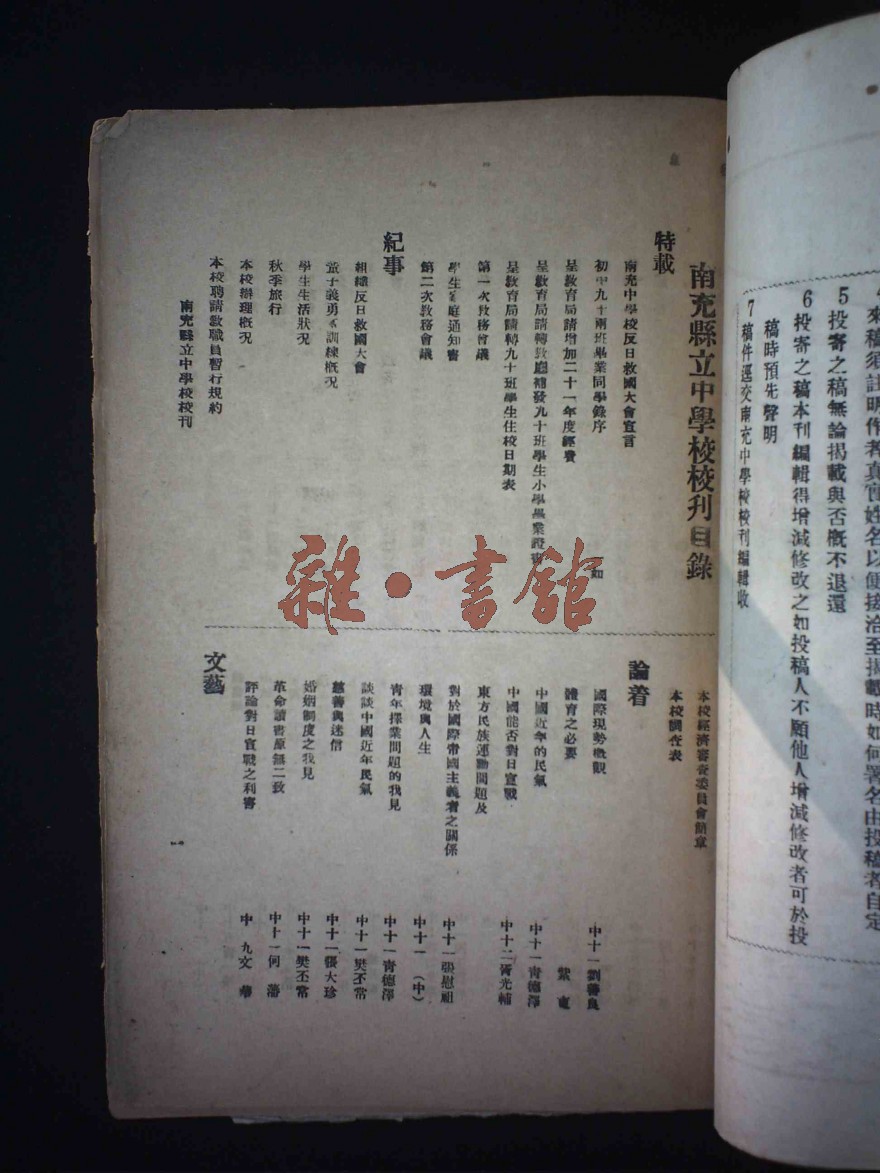 南充縣立中學校校刊目錄
特載
南充中學校反日救國大會宣言
初中九十兩班畢業同學錄序
呈教育局請增加二十一年度經費
呈教育局請轉教廳補發九十班學生小學畢業證書
呈教育局請轉九十班學生住校日期表
第一次教務會議
學生家庭通知書
第二次教務會議
紀事
組織反日救國大會
童子義勇軍訓練概況
學生生活狀況
秋季旅行
本校辦理概況
本校聘請教職員暫行規約
南充縣立中學校校刊
本校經濟審查委員會簡章
本校調查表
論着
國際現勢概觀 中十一劉善良
體育之必要 紫東
中國近年的民氣 中十一青德澤
中國能否對日宣戰 中十二胥光輔
東方民族運動問題及
對於國際帝國主義者之關係 中十一張慰祖
環境與人生 中十一(中)
青年擇業問題的我見 中十一青德澤
談談中國近年民氣 中十一樊丕常
慈善與迷信 中十二張大珍
婚姻制度之我見 中十一樊丕常
革命讀書原無二致 中十一何藩
評論對日宣戰之利害 中九文華
文藝
一
雜·書館
來稿須註明作者真實姓名以便接洽至揭載時如何署名由投稿者自定
5 投寄之稿無論揭載與否概不退還
6 投寄之稿本刊編輯得增減修改之如投稿人不願他人增減修改者可於投
稿時預先聲明
7 稿件逕交南充中學校校刊編輯收